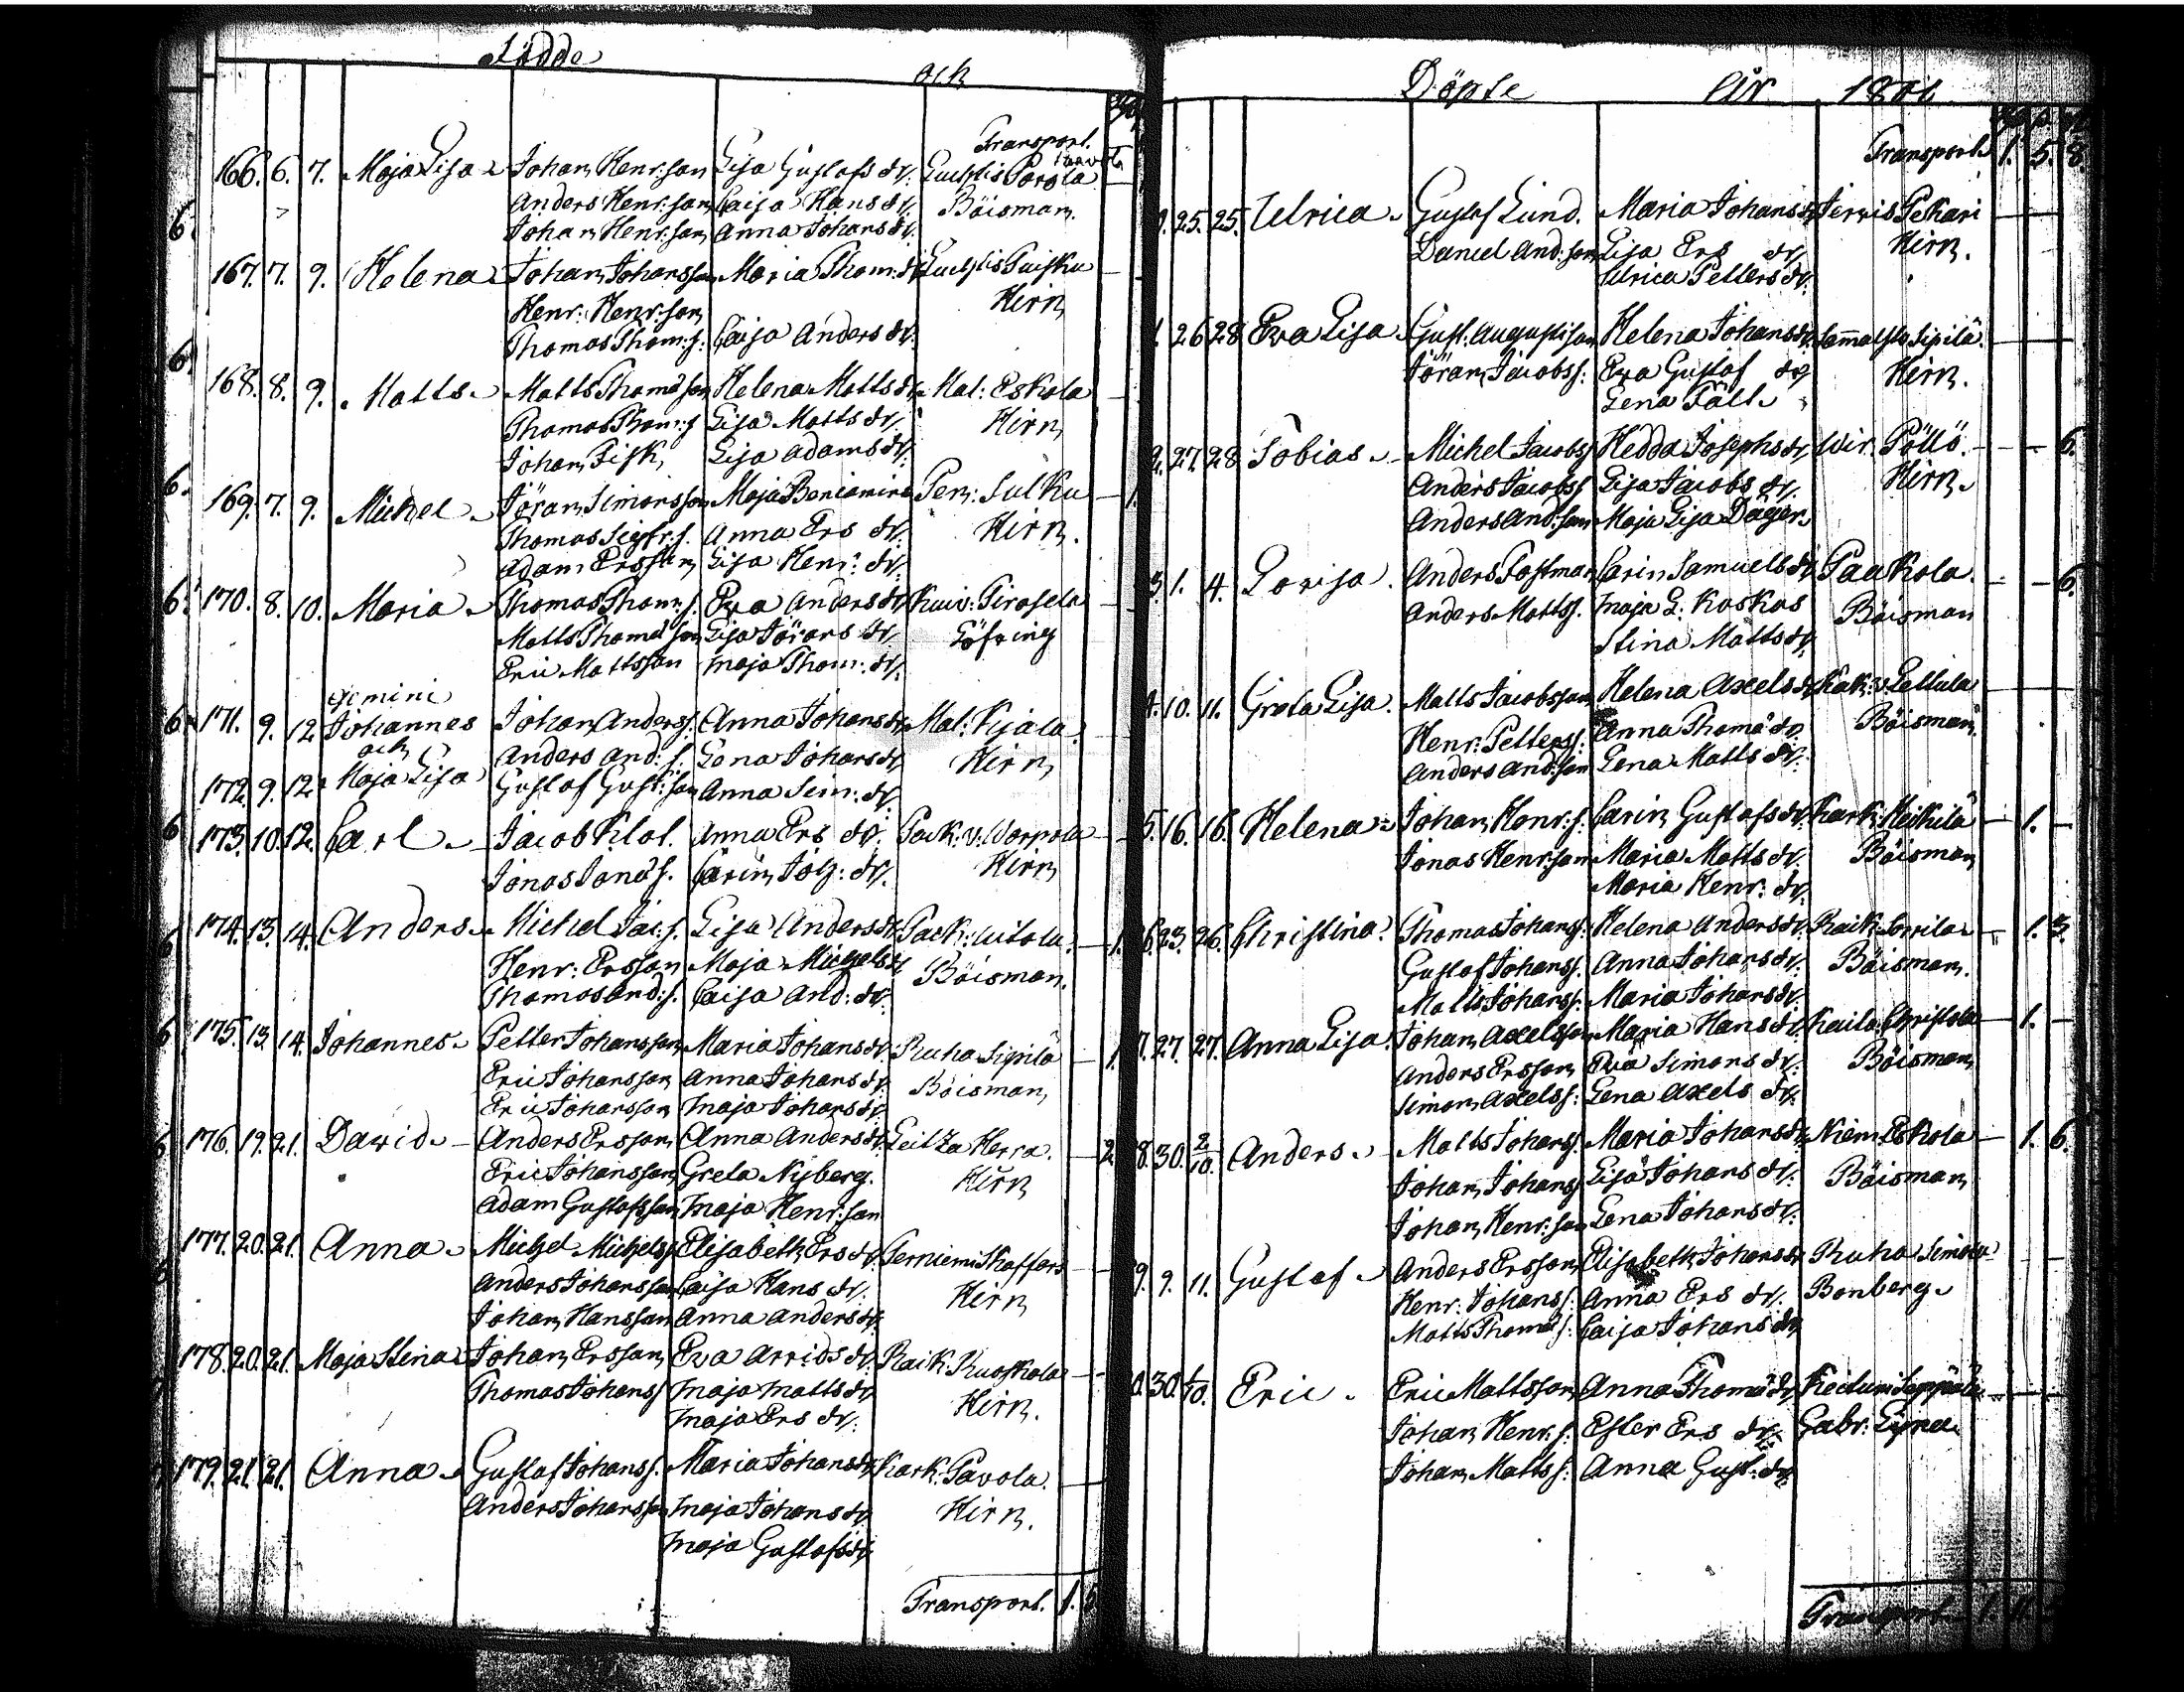 Födde och
Transport.
166. 6. 7. Maja Lisa Johan Henr:son Lisa Gustafs dr. Luchtis Parola
Anders Henr:son Caisa Hans dr. Böisman.
Johan Henr:son Anna Johans dr.
167. 7. 9. Helena Johan Johansson Maria Thom: dr. Luchtis Puisku
Henr: Henr:son Hirn
Thomas Thom:s. Caisa Anders dr.
168. 8. 9. Matts Matts Thomasson Helena Matts dr. Mal: Eskola
Thomas Thom:s Lisa Matts dr. Hirn
Johan Fisk, Lisa Adams dr.
169. 7. 9. Michel Jöran Simonsson Maja Benjamins Pern: Sulku 1.
Thomas Sigfr:s. Anna Ers dr. Hirn.
Adam Ersson Lisa Henr: dr.
170. 8. 10. Maria Thomas Thom:s. Eva Anders dr. Kuiv: Pirasela
Matts Thomasson Lisa Jörans dr. Löfving
Eric Mattsson Maja Thom: dr.
gemini
171. 9. 12 Johannes Johan Anders s. Anna Johans dr. Mal: Kjala
och Anders And: s. Lena Johans dr. Hirn
172. 9. 12 Maja Lisa Gustaf Gust:son Anna Sim: dr.
173. 10. 12. Carl Jacob Klol. Anna Ers dr. Pack: v. Warpola
Jonas Jonas s. Carin Joh: dr. Hirn
174. 13. 14. Anders Michel Jac:s. Lisa Anders dr. Pack: uitola. 1.
Henr: Ersson Maja Michels dr Böisman.
Thomas And:s. Caisa And: dr.
175. 13. 14. Johannes Petter Johansson Maria Johans dr. Ruha Sipilä 1.
Eric Johansson Anna Johans dr. Böisman,
Eric Johansson Maja Johans dr.
176. 19. 21. David Anders Ersson Anna Anders dr. Leitza Herra. 2
Eric Johansson Greta Nyberg. Hirn
Adam Gustafsson Maja Henr:son
177. 20. 21. Anna Michel Michels s Elisabeth Ers dr. Perniemi Skaffars
Anders Johansson Caisa Hans dr. Hirn
Johan Hansson Anna Anders dr.
178. 20. 21. Maja Stina Johan Ersson Eva Arvids dr. Raik: Ruoskola
Thomas Johans s Maja Matts dr. Hirn.
Maja Ers dr.
179. 21. 21. Anna Gustaf Johans s. Maria Johans dr. Kark: Pavola.
Anders Johansson Maja Johans dr. Hirn.
Maja Gustafs dr.
Transport. 1.
Döpte År
Transport 1. 5. 8.
25. 25. Ulrica Gustaf Lund. Maria Johans dr. Jervis Pekari
Daniel And:son Lisa Ers dr. Hirn.
Ulrica Petters dr.
26 28 Eva Lisa Gust: Augustison Helena Johans dr. Sammalsto Sipilä
Jöran Jacobs s: Eva Gustaf dr. Hirn.
Lena Fält
27. 28 Tobias Michel Jacobs s Hedda Josephs dr. Wir: Pöllö. 6.
Anders Jacobs s Lisa Jacobs dr. Hirn
Anders And:son Maja Lisa Däger
3. 1. 4. Lovisa. Anders Postman Carin Samuels dr Paakola. 6.
Anders Matts s. Maja L: Koskos Böisman
Stina Matts dr.
4. 10. 11. Greta Lisa. Matts Jacobsson Helena Axels dr. Kak: v. Lellula
Henr: Petters s: Anna Thomas dr. Böisman.
Anders And:son Lena Matts dr.
5. 16. 16. Helena Johan Henr: s: Carin Gustafs dr. Kark: Heikilä 1.
Jonas Henr:son Maria Matts dr. Böisman
Maria Henr: dr.
6. 23. 26. Christina. Thomas Johans s: Helena Anders dr. Raik: Sorrila 1. 3.
Gustaf Johans s. Anna Johans dr. Böisman.
Matts Johans s: Maria Johans dr.
7. 27. 27. Anna Lisa. Johan Axelsson Maria Hans dr. Kaila Christola 1.
Anders Ersson Eva Simons dr. Böisman
Simon Axels s: Lena Axels dr.
8. 30. 2/10. Anders Matts Johans s. Maria Johans dr. Niem: Eskola 1. 6.
Johan Johans s Lisa Johans dr. Böisman
Johan Henr:son Lena Johans dr.
9. 9. 11. Gustaf Anders Ersson Elisabeth Johans dr Ruha Simola
Henr: Johans s: Anna Ers dr. Bonberg
Matts Thomas s: Caisa Johans dr.
0. 30. 1/10. Eric Eric Mattsson Anna Thomas dr. Kiectumi Seppälä
Johan Henr: s: Ester Ers dr. Gabr: Lignel
Johan Matts s: Anna Gust: dr.
Transport